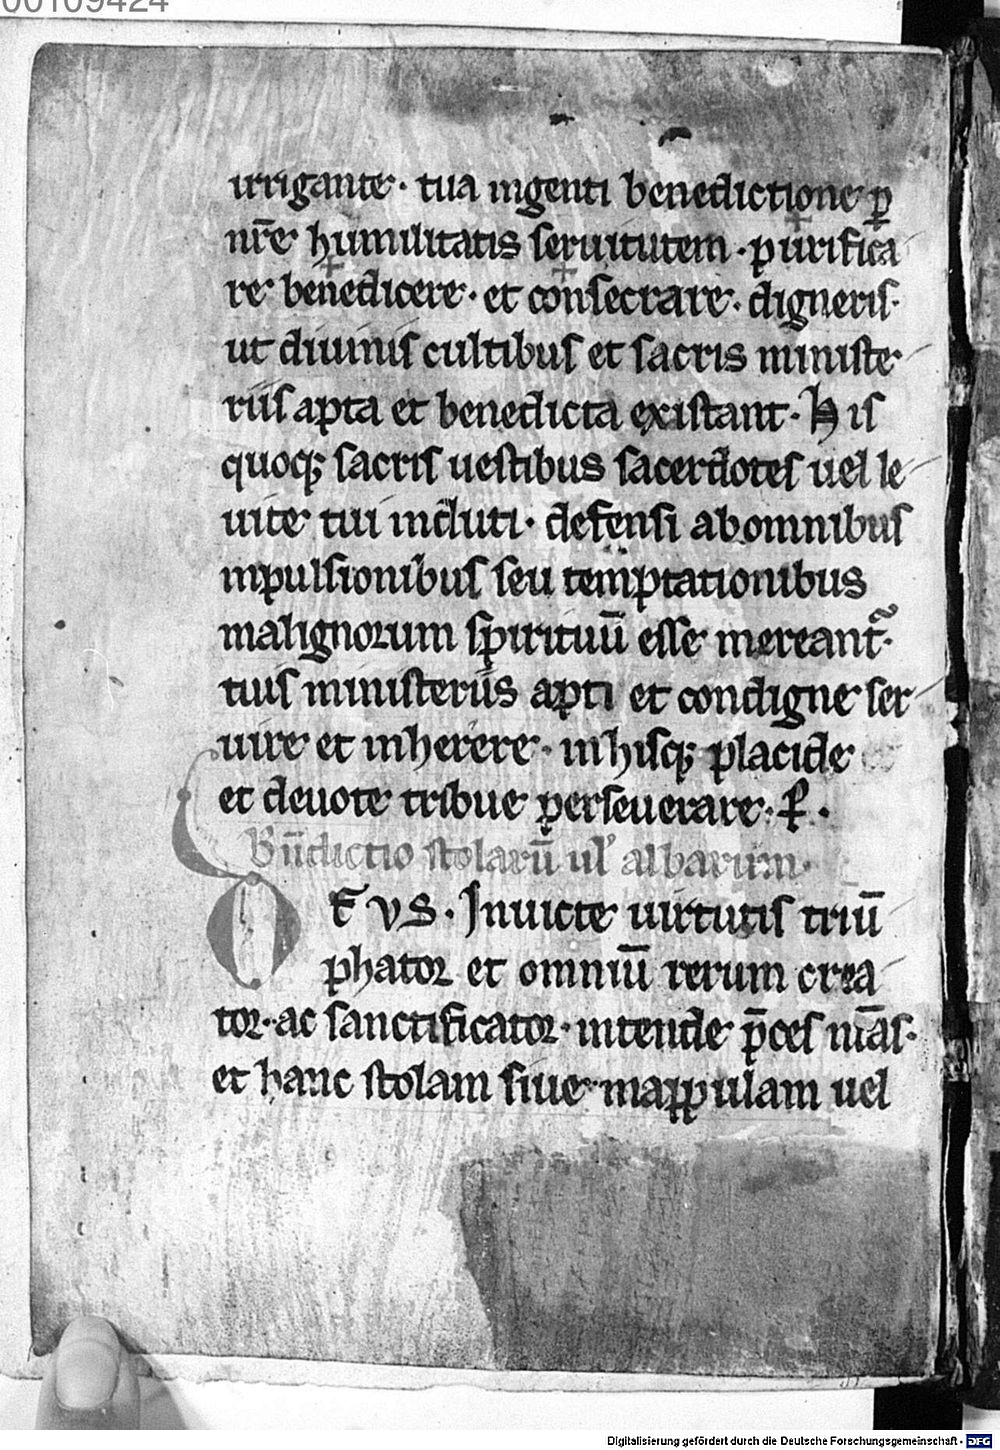 00109424
irrigante · tua ingenti benedictione ꝑ
nr̄e humilitatis seruitutem · purifica
re benedicere · et consecrare · digneris ·
ut diuinis cultibus et sacris ministe
riis apta et benedicta existant · His
quoqꝫ sacris uestibus sacerdotes uel le
uite tui induti · defensi ab omnibus
inpulsionibus seu temptationibus
malignorum spirituū esse mereant᷑ ·
tuis ministeriis apti et condigne ser
uire et inherere · in hisqꝫ placide
et deuote tribue perseuerare · P ·
Bn̄dictio stolarū ul' albarum ·
DEVS · Inuicte uirtutis triū
phator et omniū rerum crea
tor · ac sanctificator · intende p̄ces nr̄as ·
et hanc stolam siue mappulam uel
Digitalisierung gefördert durch die Deutsche Forschungsgemeinschaft - DFG